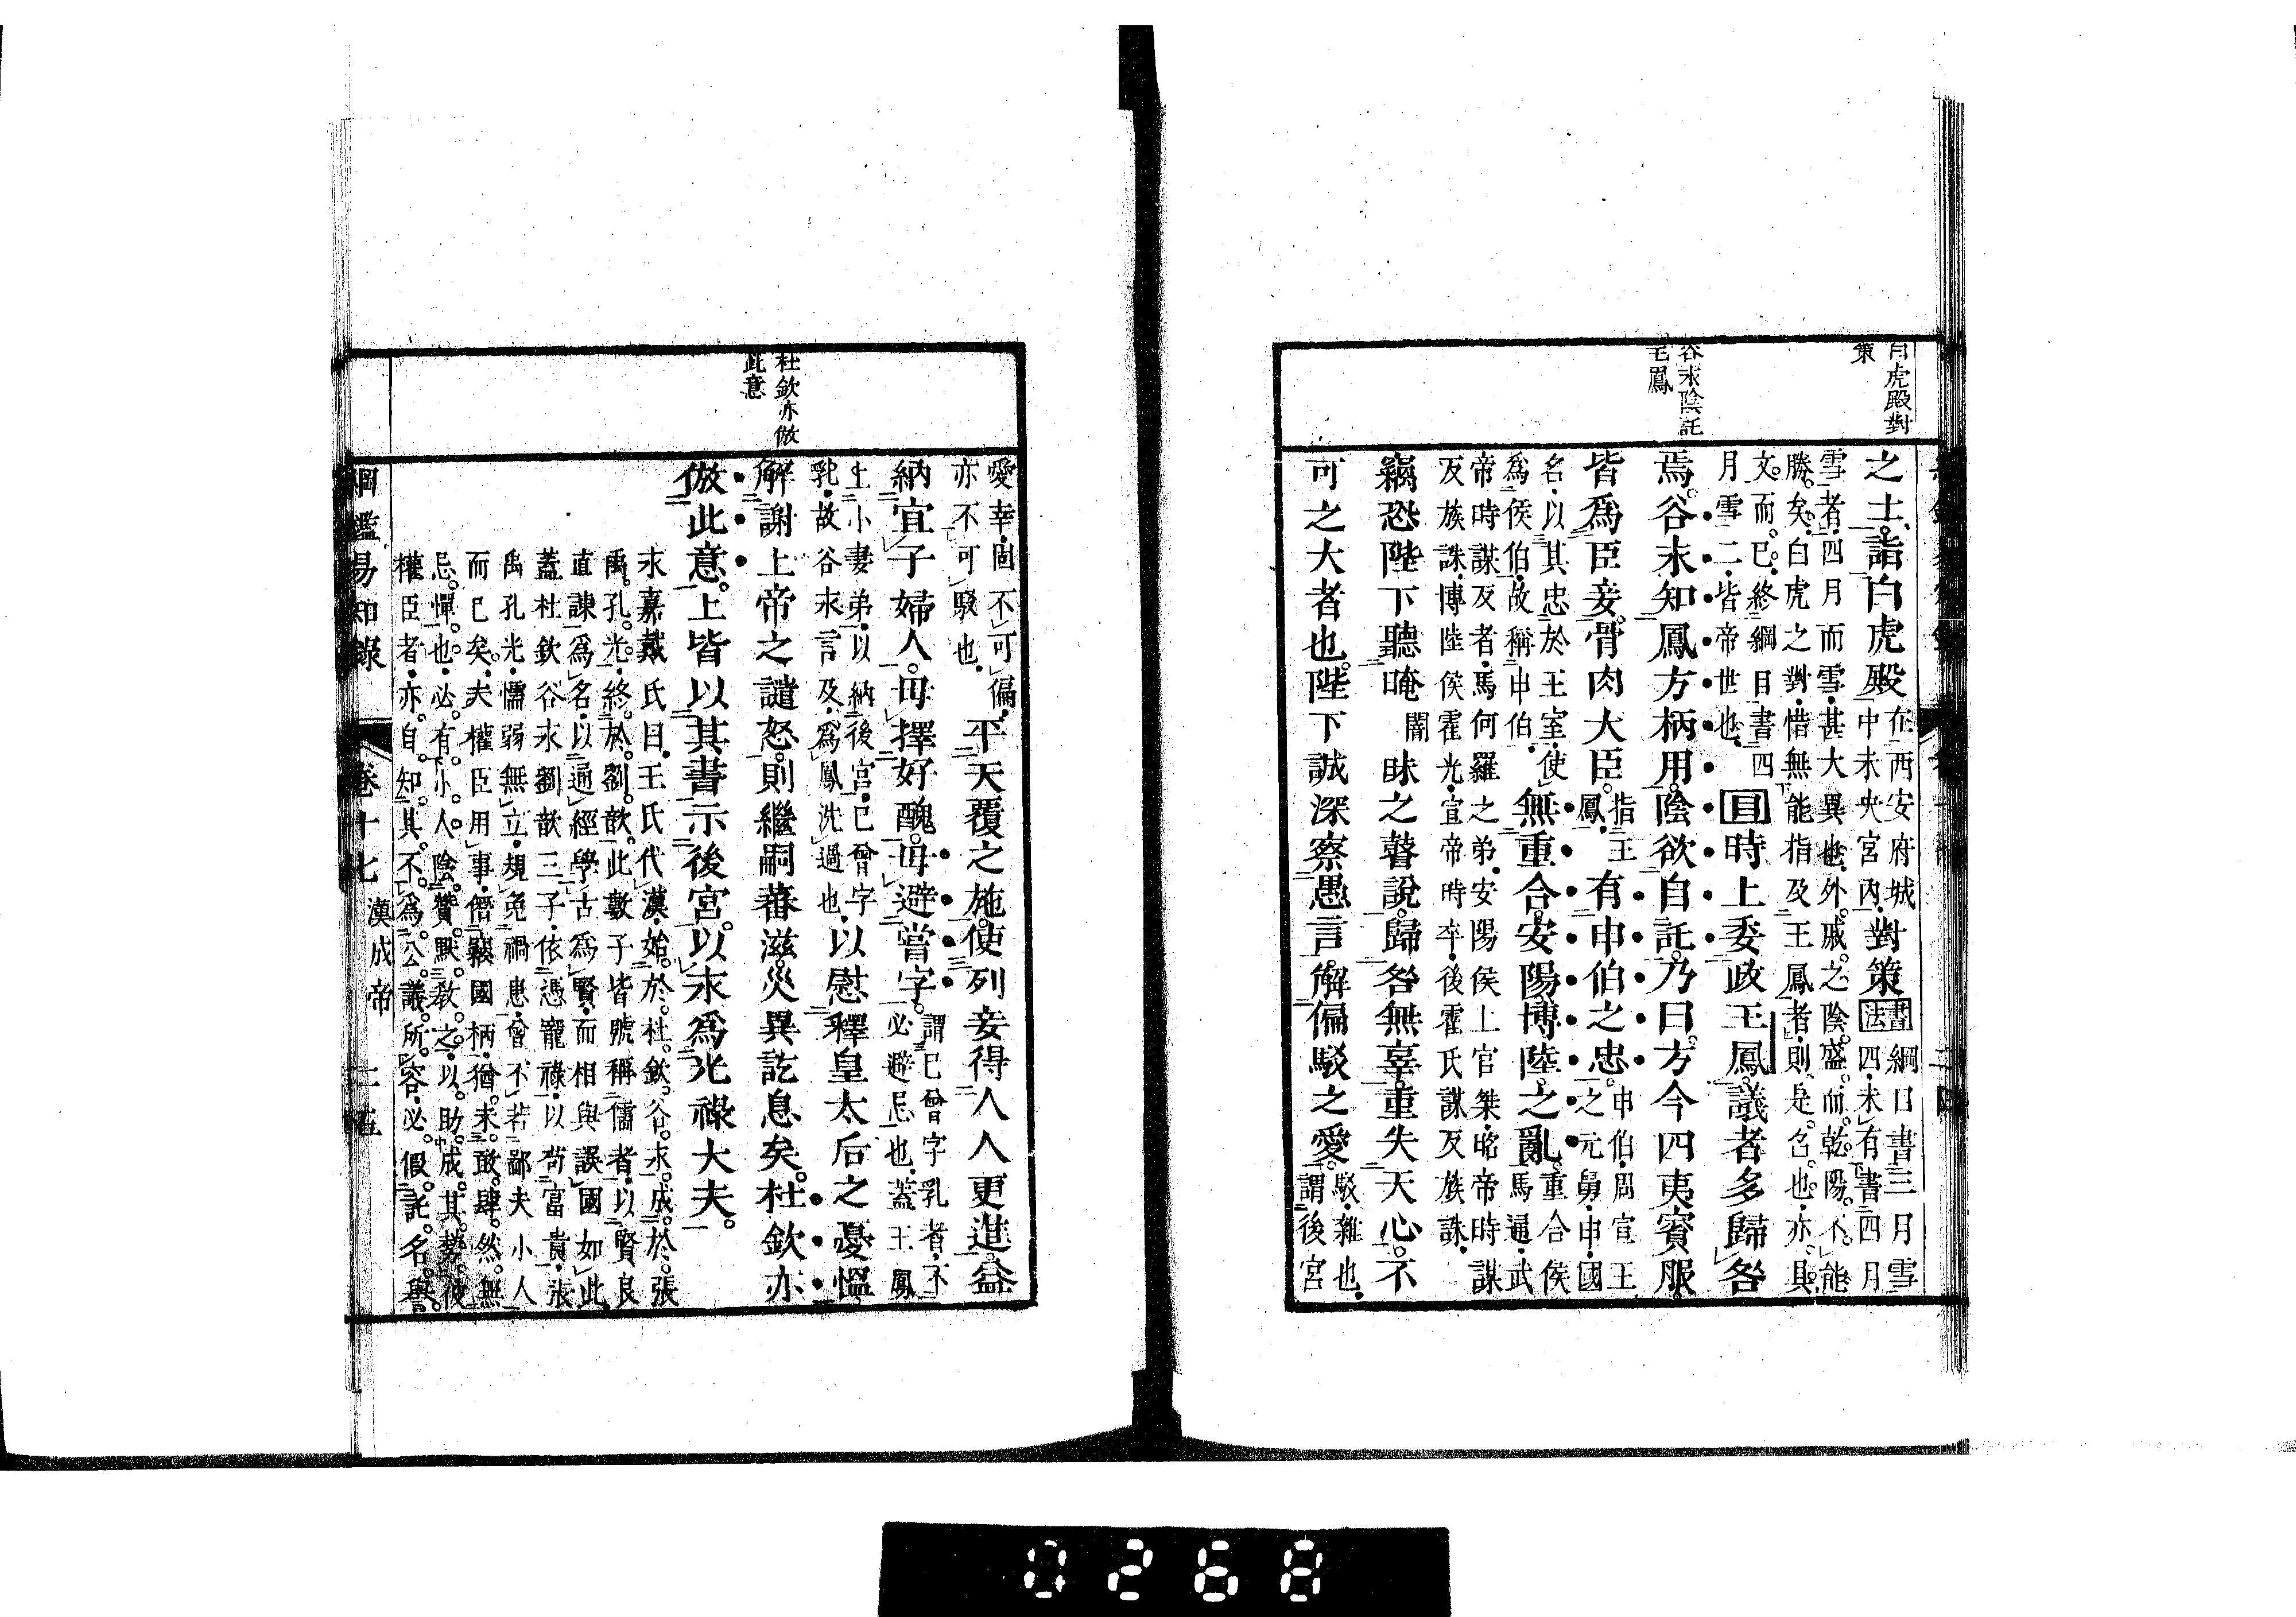 白虎殿對
策
谷永陰託
王鳳
之士詣白虎殿在西安府城中未央宮內對策書法綱目書三月雪四未有書四月
雪者四月而雪甚大異也外戚之陰盛而乾陽不能
勝矣白虎之對惜無能指及王鳳者則是咎也亦具
文而已終綱目書四
月雪二皆帝世也目時上委政王鳳議者多歸咎
焉谷永知鳳方柄用陰欲自託乃曰方今四夷賓服
皆爲臣妾骨肉大臣指王鳳有申伯之忠申伯周宣王之元舅申國
名以其忠於王室使
爲侯伯故稱申伯無重合安陽博陸之亂重合侯馬通武
帝時謀反者馬何羅之弟安陽侯上官桀昭帝時謀
反族誅博陸侯霍光宣帝時卒後霍氏謀反族誅
竊恐陛下聽晻闇昧之瞽說歸咎無辜重失天心不
可之大者也陛下誠深察愚言解偏駁之愛駁雜也謂後宮
杜欽亦倣
此意
愛幸固不可偏
亦不可駁也平天覆之施使列妾得人人更進益
納宜子婦人毋擇好醜毋避嘗字謂已曾字乳者不必避忌也蓋王鳳
上小妻弟以納後宮已曾字
乳故谷永言及爲鳳洗過也以慰釋皇太后之憂慍
解謝上帝之譴怒則繼嗣蕃滋災異訖息矣杜欽亦
倣此意上皆以其書示後宮以永爲光祿大夫
永嘉戴氏曰王氏代漢始於杜欽谷永成於張
禹孔光終於劉歆此數子皆號稱儒者以賢良
直諫爲名以通經學古爲賢而相與誤國如此
蓋杜欽谷永劉歆三子依憑寵祿以苟富貴張
禹孔光懦弱無立規免禍患曾不若鄙夫小人
而已矣夫權臣用事僭竊國柄猶未敢肆然無
忌憚也必有小人陰贊默教之以助成其勢彼
權臣者亦自知其不爲公議所容必假託名譽
綱鑑易知錄 卷十七 漢成帝 二五
0268